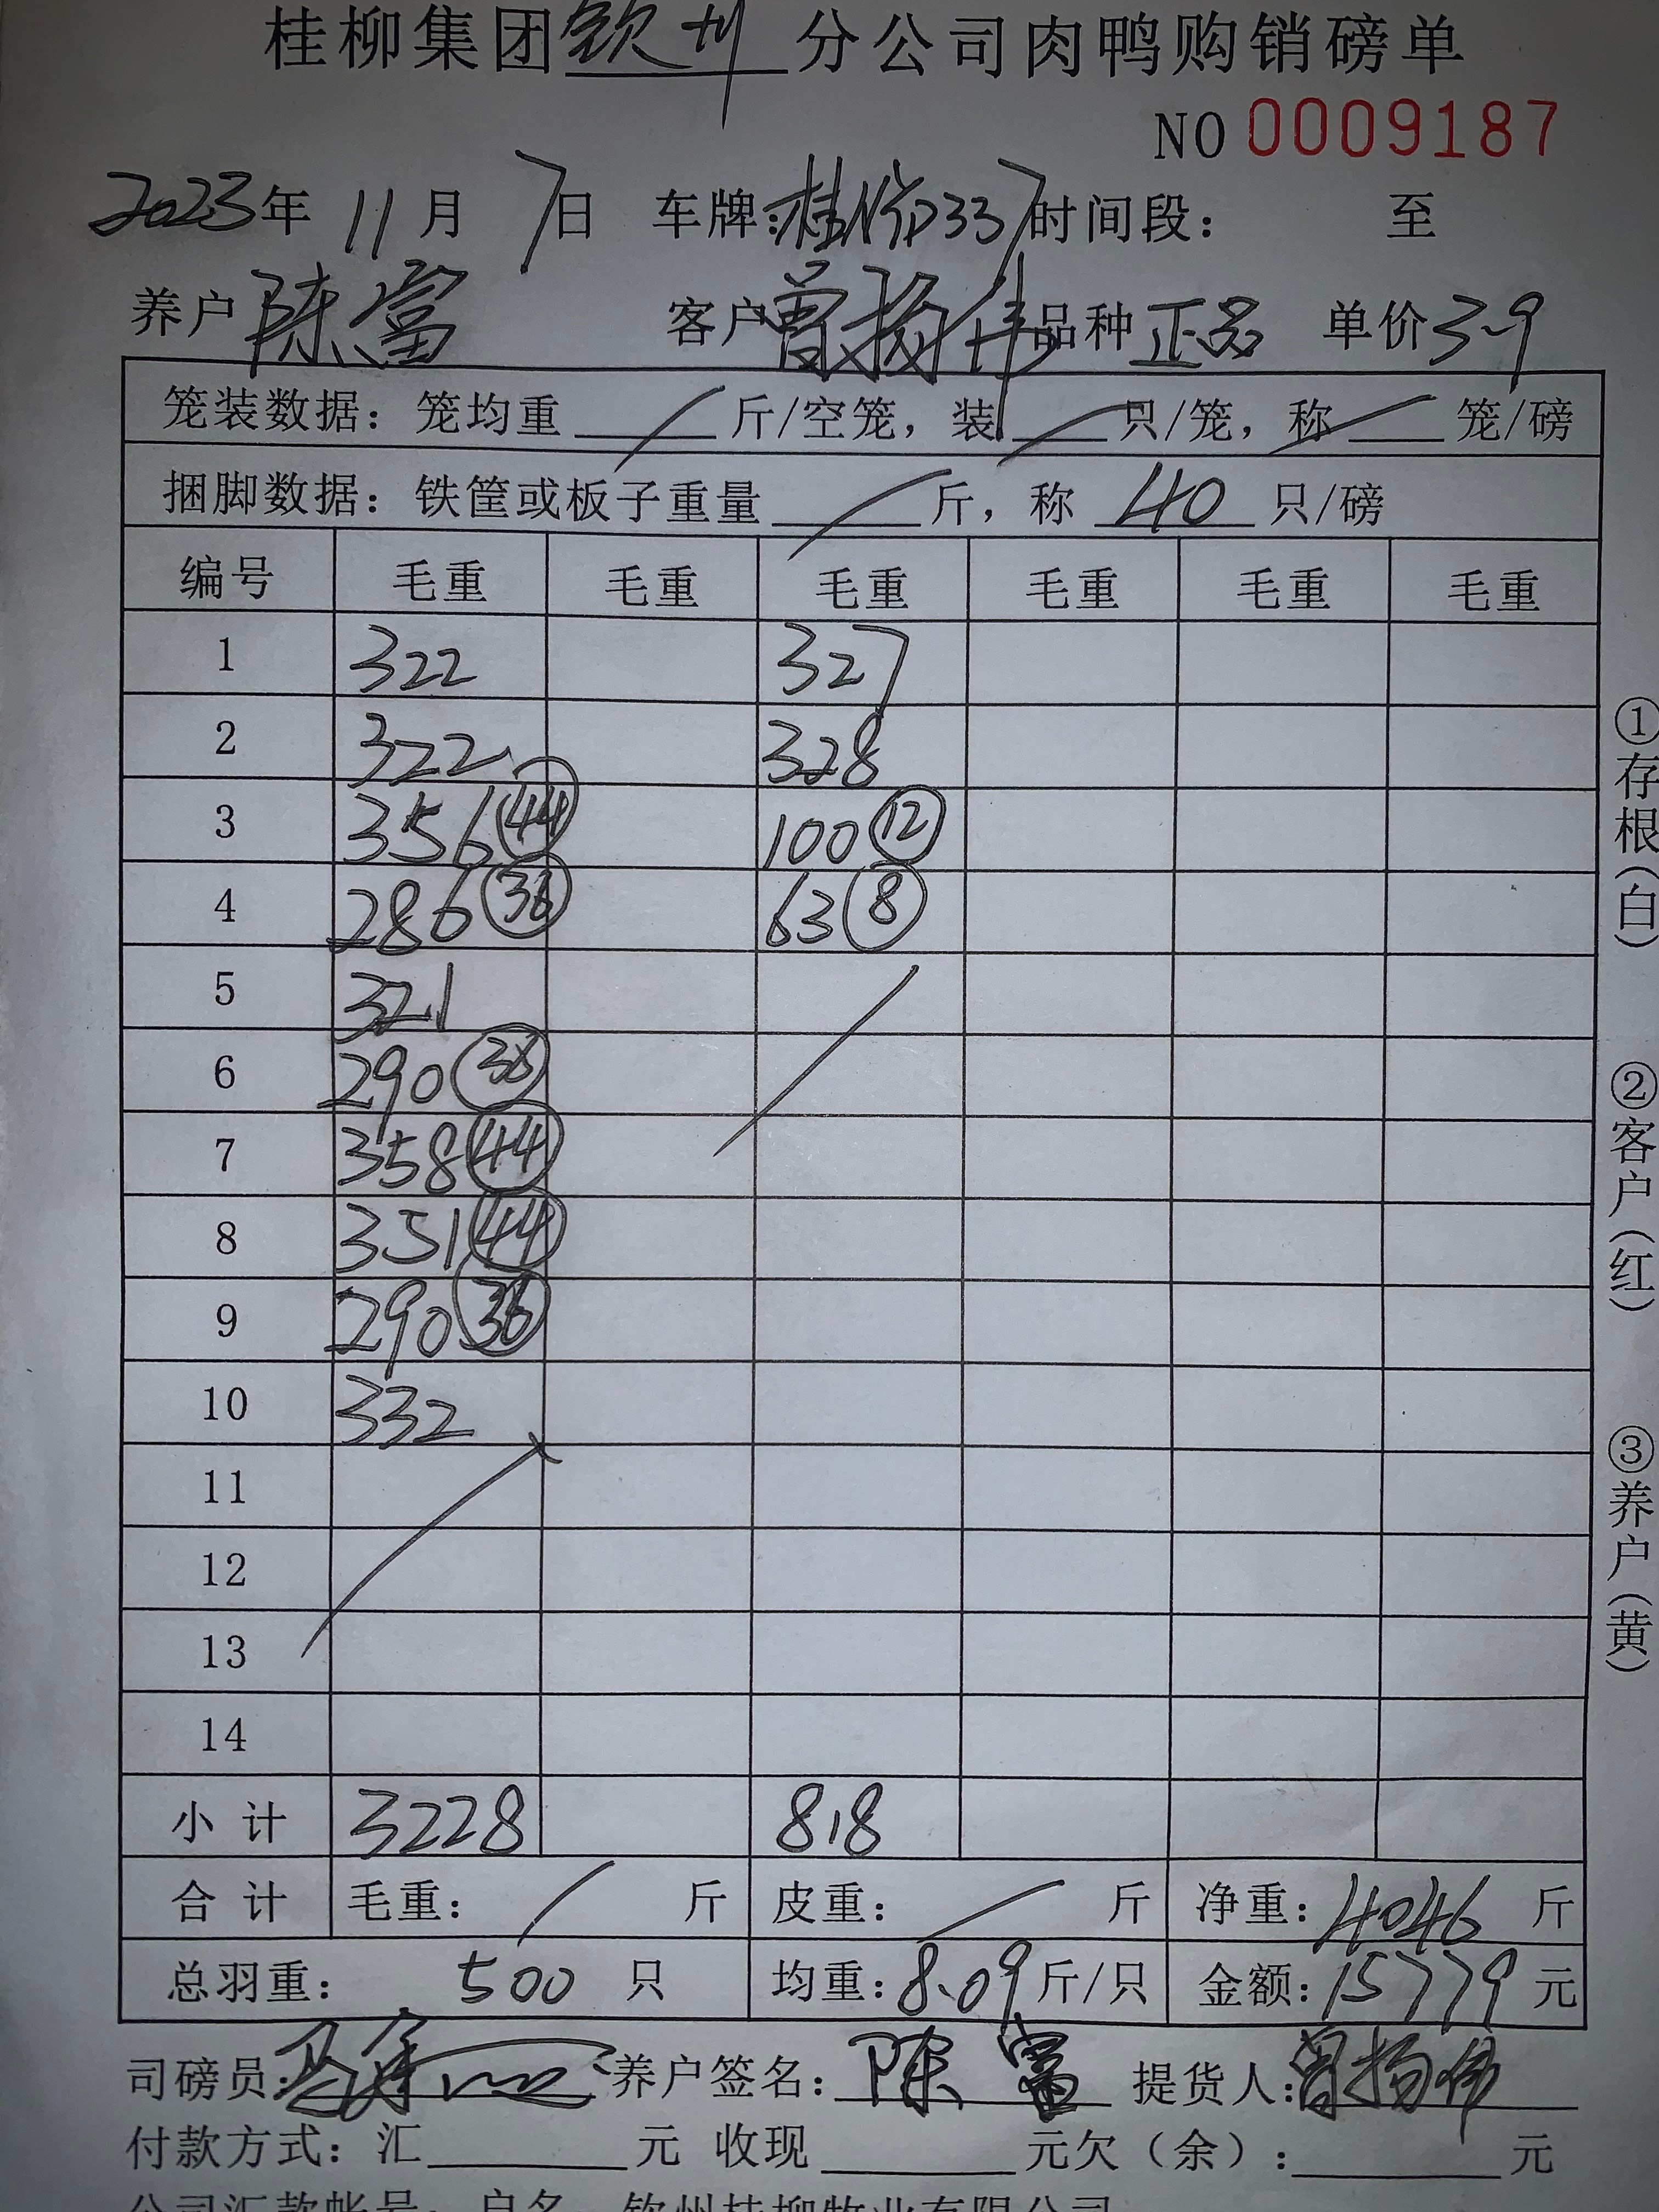 桂柳集团钦州分公司肉鸭购销磅单
NO 0009187
2023年 11月 7日 车牌:桂 D337 时间段: 至
养户 陈富 客户 曾扬伟 品种 正品 单价 3.9
笼装数据: 笼均重 / 斤/空笼, 装 / 只/笼, 称 / 笼/磅
捆脚数据: 铁筐或板子重量 / 斤, 称 40 只/磅
编号 毛重 毛重 毛重 毛重 毛重 毛重
1 322 327
2 322 328
3 356 44 100 12
4 286 36 63 8
5 321
6 290 36
7 358 44
8 351 44
9 290 36
10 332
11
12
13
14
小计 3228 818
合计 毛重: / 斤 皮重: / 斤 净重: 4046 斤
总羽重: 500 只 均重: 8.09 斤/只 金额: 15779 元
司磅员: 养户签名: 陈富 提货人: 曾扬伟
付款方式: 汇 元 收现 元欠(余): 元
公司汇款帐号: 户名 钦州桂柳牧业有限公司
①存根(白)
②客户(红)
③养户(黄)